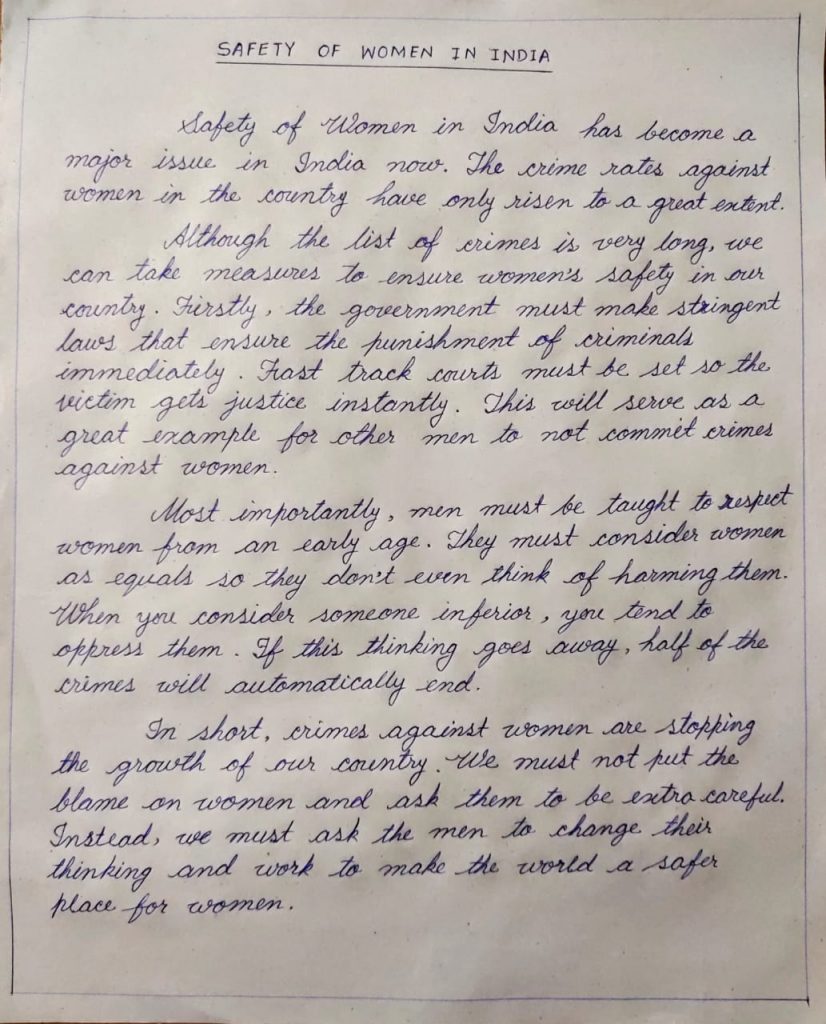 SAFETY OF WOMEN IN INDIA
Safety of Women in India has become a
major issue in India now. The crime rates against
women in the country have only risen to a great extent.
Although the list of crimes is very long, we
can take measures to ensure women's safety in our
country. Firstly, the government must make stringent
laws that ensure the punishment of criminals
immediately. Fast track courts must be set so the
victim gets justice instantly. This will serve as a
great example for other men to not commit crimes
against women.
Most importantly, men must be taught to respect
women from an early age. They must consider women
as equals so they don't even think of harming them.
When you consider someone inferior, you tend to
oppress them. If this thinking goes away, half of the
crimes will automatically end.
In short, crimes against women are stopping
the growth of our country. We must not put the
blame on women and ask them to be extra careful.
Instead, we must ask the men to change their
thinking and work to make the world a safer
place for women.